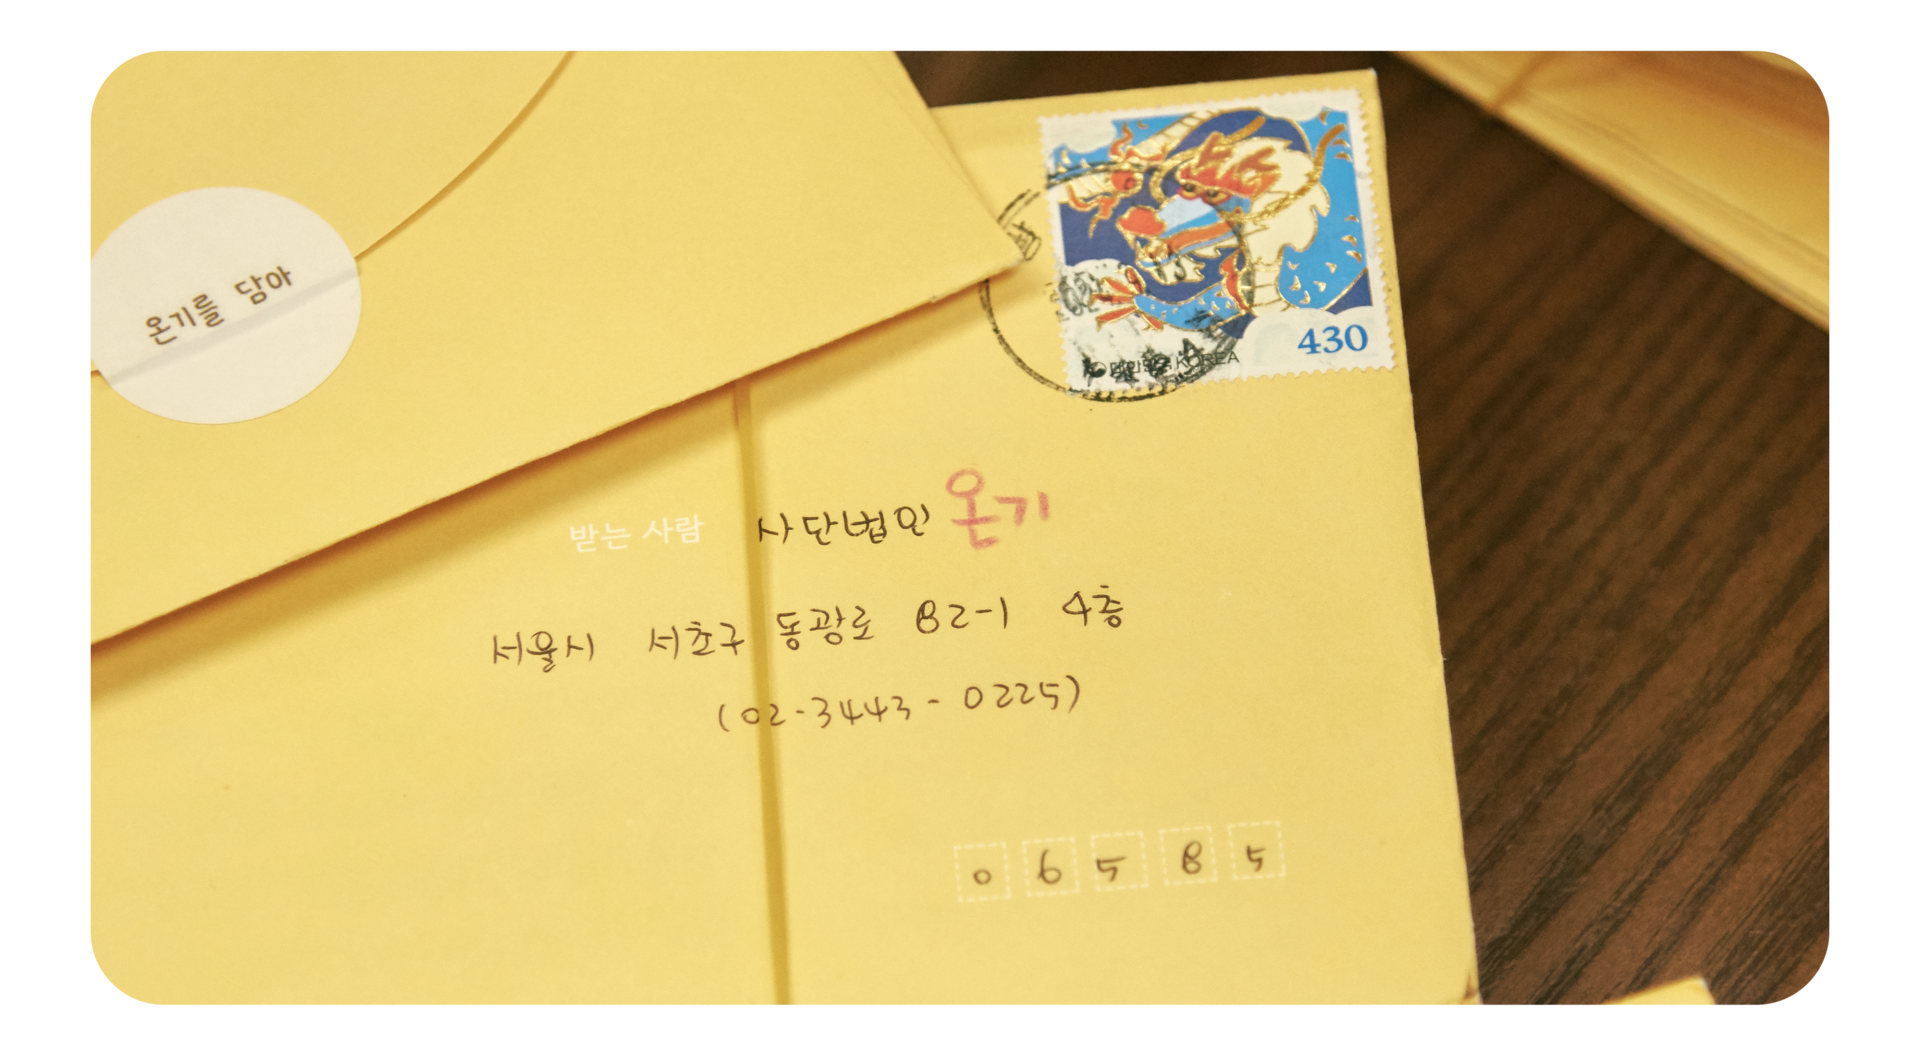 온기를 담아
430
대한민국 KOREA
받는 사람 사단법인 온기
서울시 서초구 동광로 82-1 4층
(02-3443-0225)
06585